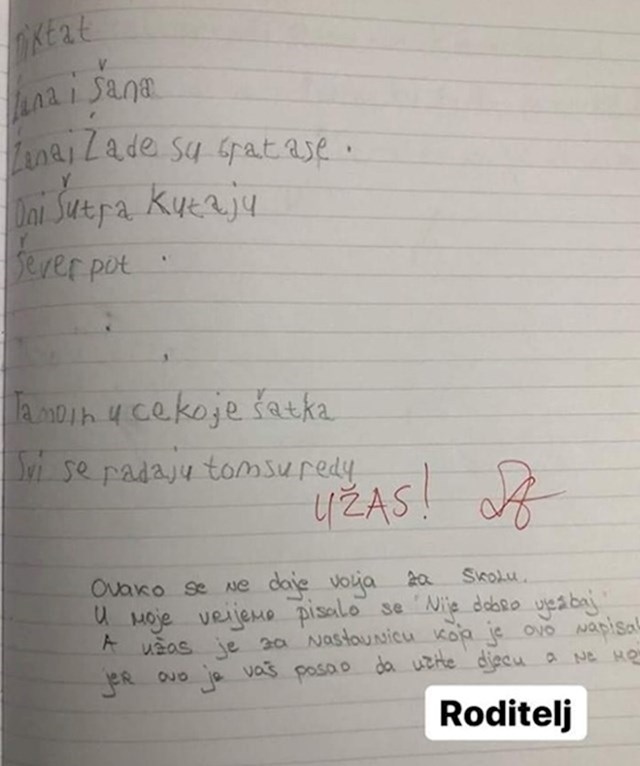 Diktat
Žana i Šana
Žana i Žade su bratase.
Oni Šutra kutaju
Šever pot.
Tamoih ucekoje šatka
Svi se radaju tomsuredu
UŽAS!
Ovako se ne daje volja za školu.
U moje vrijeme pisalo se "Nije dobro vježbaj"
A užas je za nastavnicu koja je ovo napisal
jer ovo je vaš posao da učite djecu a ne mo
Roditelj